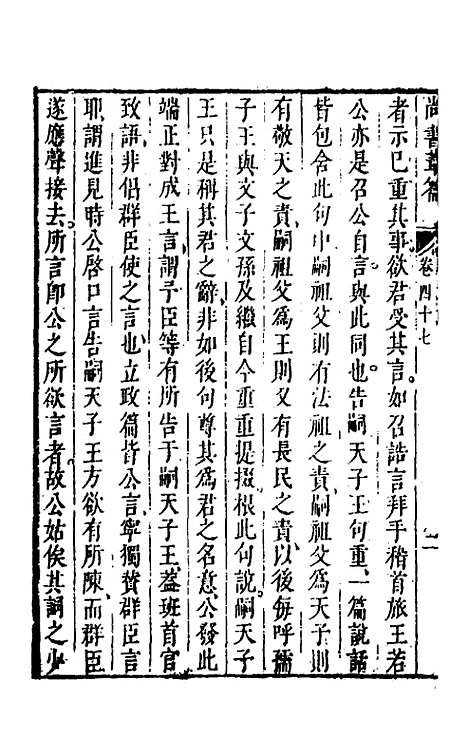 尚書葦籥
卷四十七
者示巳重其事欲君受其言如召誥言拜手稽首旅王若
公亦是召公自言與此同也告嗣天子王句重一篇說話
皆包含此句中嗣祖父則有法祖之責嗣祖父爲天子則
有敬天之責嗣祖父爲王則又有長民之責以後每呼孺
子王與文子文孫及繼自今重重提掇根此句說嗣天子
王只是稱其君之辭非如後句尊其爲君之名意公發此
端正對成王言謂予臣等有所告于嗣天子王葢班首官
致語非倡群臣使之言也立政篇皆公言寧獨贊群臣言
耶謂進見時公啓口言告嗣天子王方欲有所陳而群臣
遂應聲接去所言卽公之所欲言者故公姑俟其詞之少